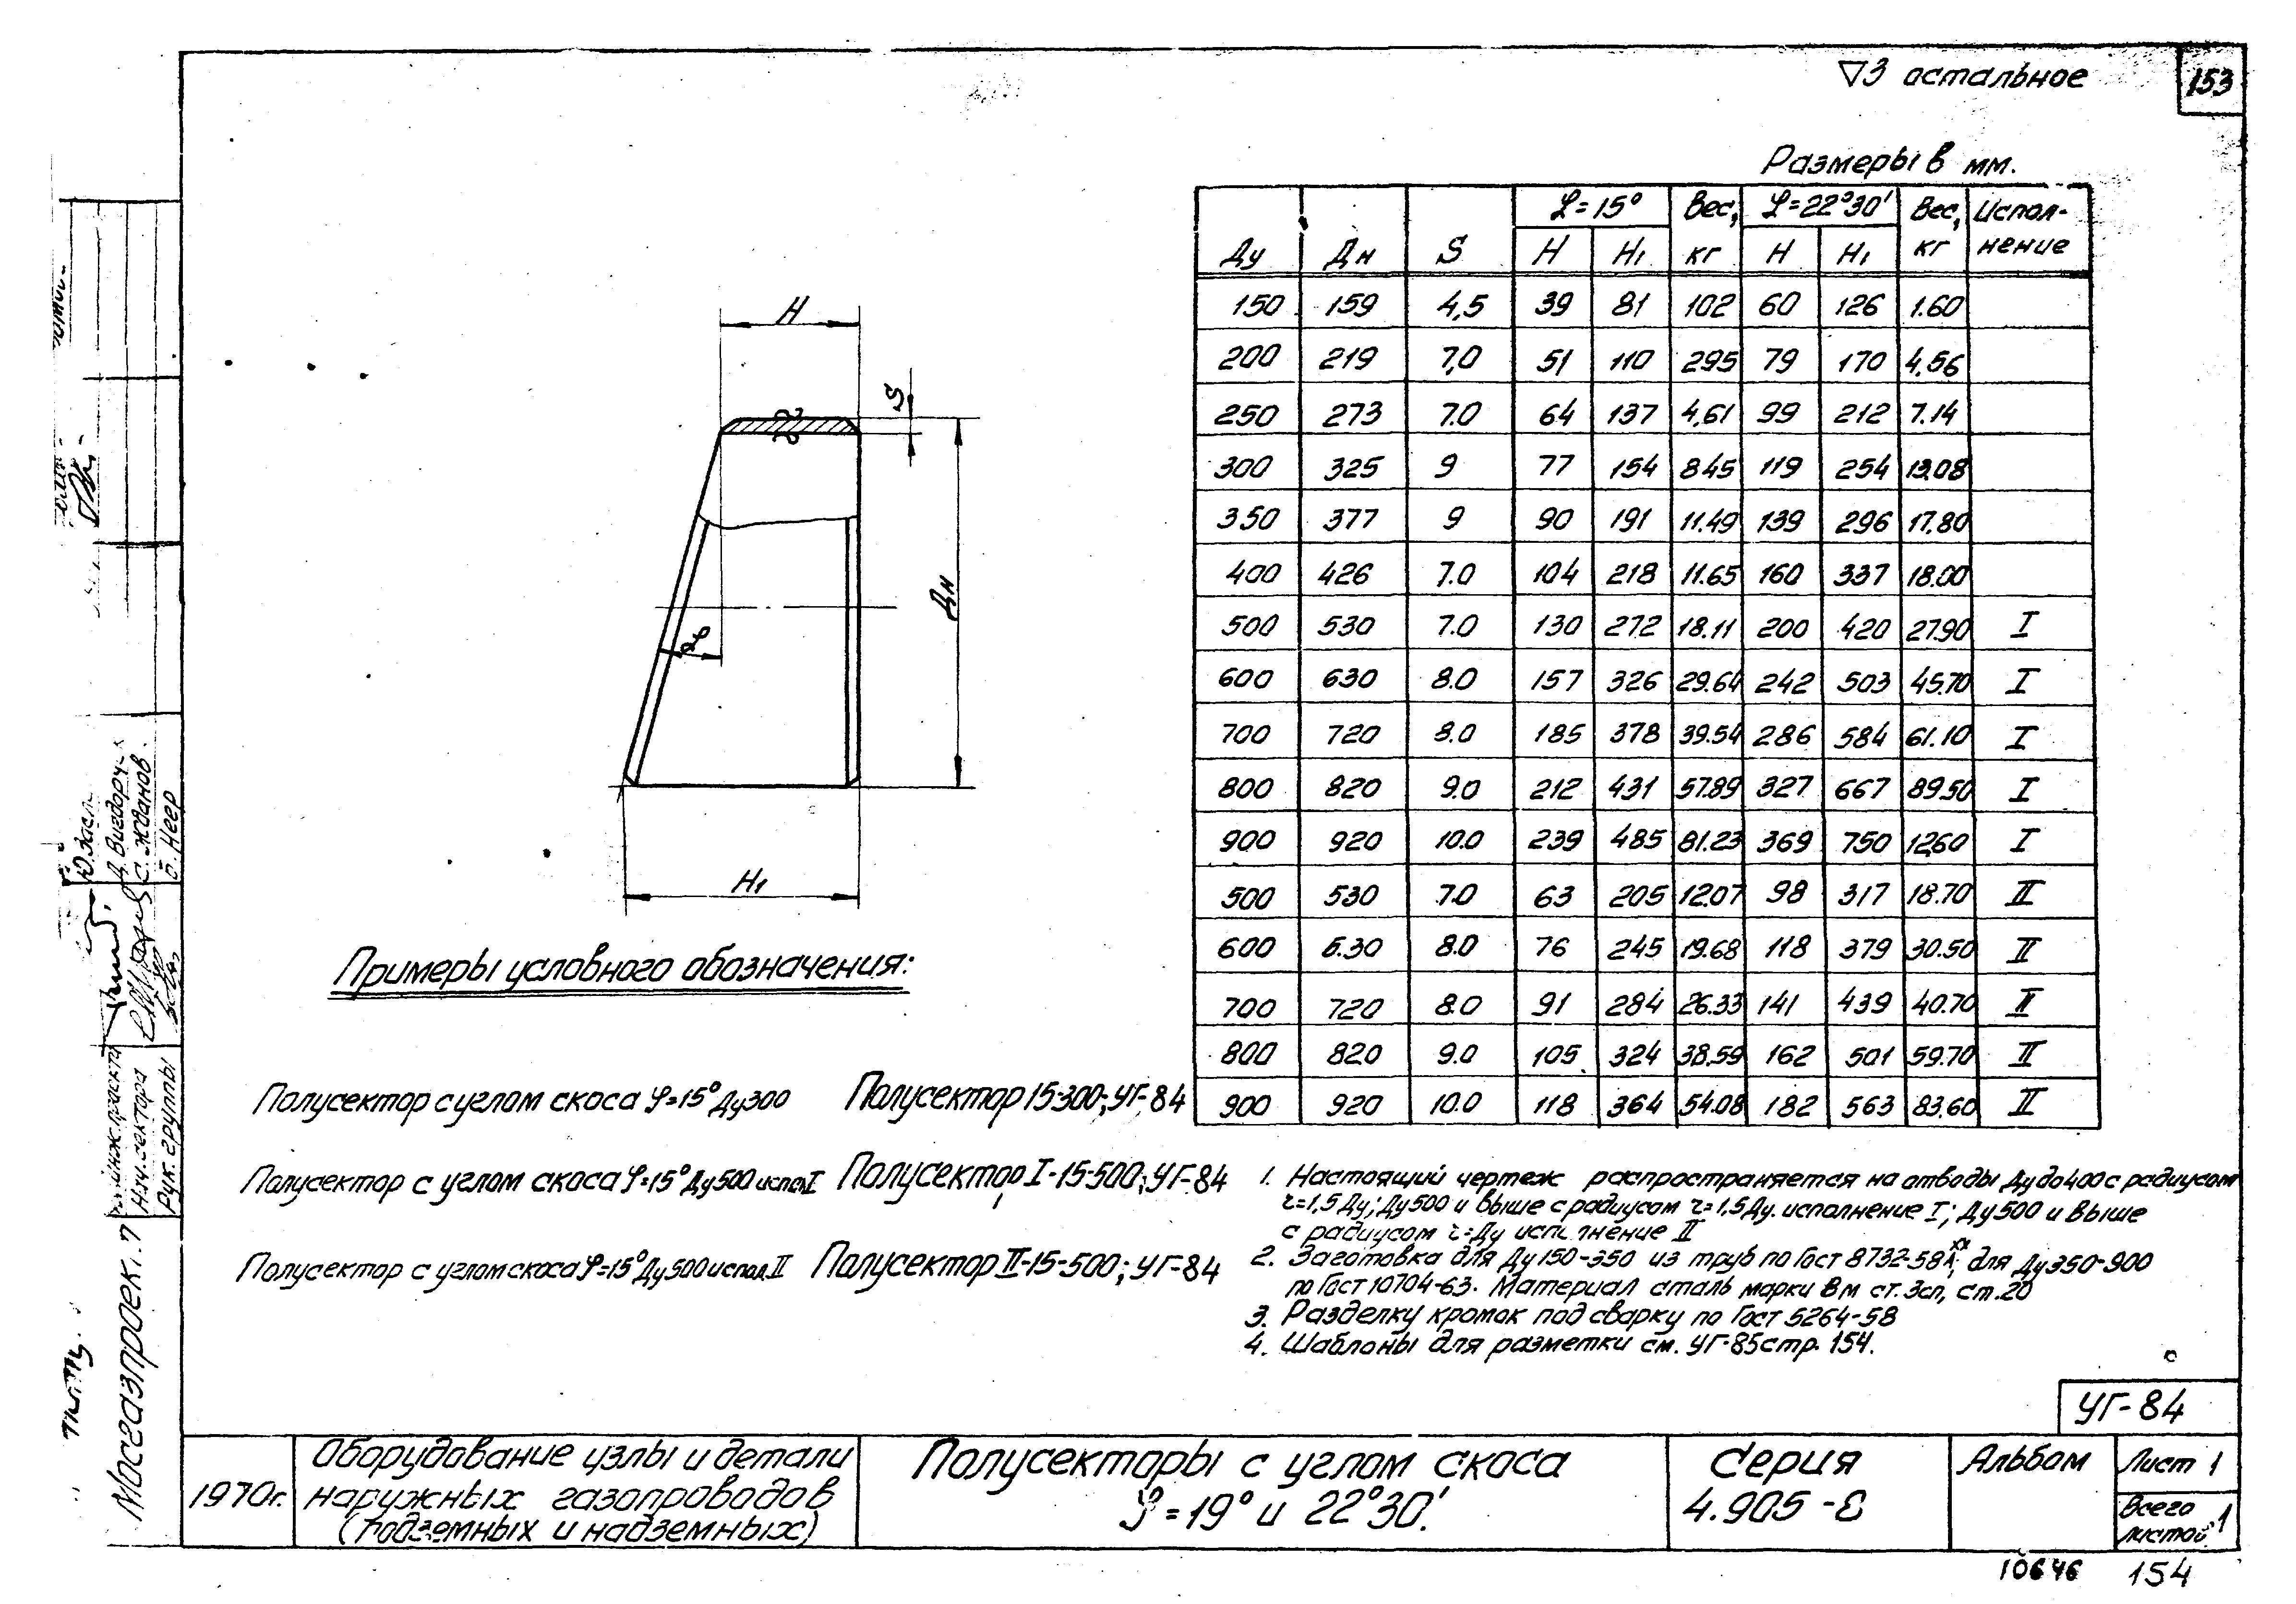 ▽3 остальное
153
Размеры в мм.
Ду Дн S φ=15° Вес, кг φ=22°30' Вес, кг Исполнение
H H₁ H H₁
150 159 4,5 39 81 102 60 126 1.60
200 219 7,0 51 110 295 79 170 4,56
250 273 7.0 64 137 4,61 99 212 7.14
300 325 9 77 154 845 119 254 13.08
350 377 9 90 191 11.49 139 296 17.80
400 426 7.0 104 218 11.65 160 337 18.00
500 530 7.0 130 272 18.11 200 420 27.90 I
600 630 8.0 157 326 29.64 242 503 45.70 I
700 720 8.0 185 378 39.54 286 584 61.10 I
800 820 9.0 212 431 57.89 327 667 89.50 I
900 920 10.0 239 485 81.23 369 750 1260 I
500 530 7.0 63 205 12.07 98 317 18.70 II
600 6.30 8.0 76 245 19.68 118 379 30.50 II
700 720 8.0 91 284 26.33 141 439 40.70 II
800 820 9.0 105 324 38.59 162 501 59.70 II
900 920 10.0 118 364 54.08 182 563 83.60 II
H
S
Дн
φ
H₁
Примеры условного обозначения:
Полусектор с углом скоса φ=15° Ду300 Полусектор 15-300; УГ-84
Полусектор с углом скоса φ=15° Ду500 испол I Полусектор I-15-500; УГ-84
Полусектор с углом скоса φ=15° Ду500 испол. II Полусектор II-15-500; УГ-84
1. Настоящий чертеж распространяется на отводы Ду до 400 с радиусом
r=1,5 Ду; Ду500 и выше с радиусом r=1,5 Ду. исполнение I; Ду500 и выше
с радиусом r=Ду исполнение II
2. Заготовка для Ду150-350 из труб по Гост 8732-58; для Ду350-900
по Гост 10704-63. Материал сталь марки Вм ст. 3сп, ст.20
3. Разделку кромок под сварку по Гост 5264-58
4. Шаблоны для разметки см. УГ-85 стр. 154.
УГ-84
1970г.
Оборудование узлы и детали
наружных газопроводов
(подземных и надземных)
Полусекторы с углом скоса
φ=19° и 22°30'.
Серия
4.905-8
Альбом
Лист 1
Всего
листов 1
10646 154
Мосгазпроект
Нач. сектора
Рук. группы
С. Жданов
Б. Неер